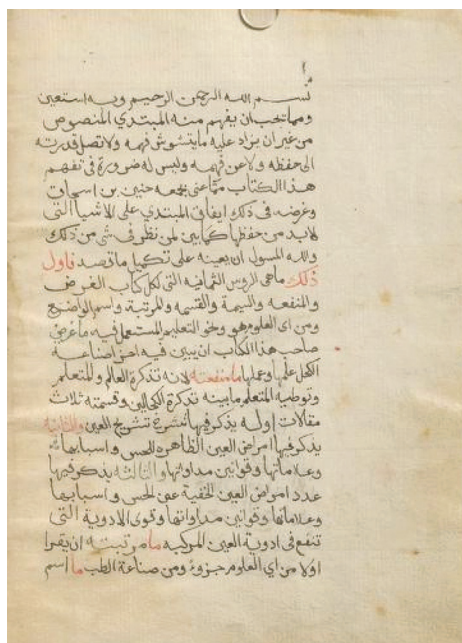 بسم الله الرحمن الرحيم وبه استعين
ومما يجب ان يفهم منه المبتدي المنصوص
من غير ان يزاد عليه ما يتشوش فهمه ولا تصل قدرته
الى حفظه ولا عن فهمه وليس له ضرورة فى تفهم
هذا الكتاب مما عنى بجمعه حنين بن اسحاق
وغرضه فى ذلك ايقاف المبتدي على الاشيا التى
لابد من حفظها كما يبين لمن نظر فى شى من ذلك
والله المسول ان يعينه على تكميل ما قصد فاول
ذلك ما هى الروس الثمانيه التى لكل كتاب الغرض
والمنفعه والسمة والقسمه والمرتبة واسم الواضع
ومن اى العلوم هو ونحو التعليم المستعمل فيه ما غرض
صاحب هذا الكتاب ان يبين فيه اجزا صناعة
الكحل علمها وعملها ما منفعته لانه تذكرة العالم وللمتعلم
وتوطية المتعلم ما يبنه تذكرة الكحالين وقسمته ثلاث
مقالات اوله يذكر فيها تشريح العين والثانيه
يذكر فيها امراض العين الظاهره للحس واسبابها
وعلاماتها وقوانين مداواتها والثالثه يذكر فيها
عدد امراض العين الخفية عن الحس واسبابها
وعلاماتها وقوانين مداواتها وقوى الادوية التى
تنفع فى ادوية العين المركبه ما مرتبته ان يقرا
اولا من اي العلوم جزوء ومن صناعة الطب ما اسم